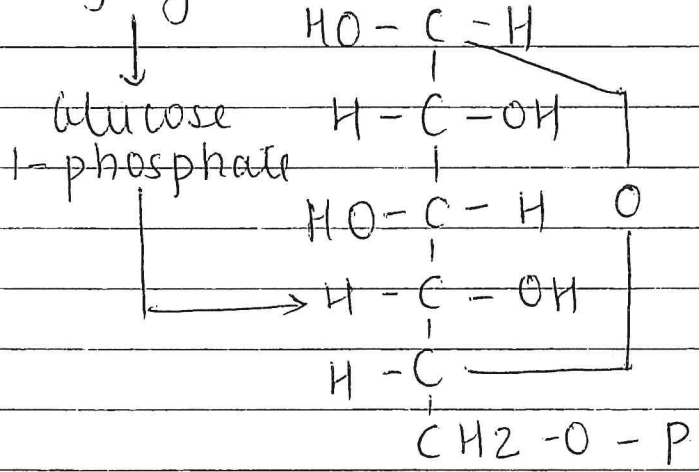 HO - C - H
Glucose H - C - OH
1-phosphate
HO - C - H O
H - C - OH
H - C
CH2 - O - P